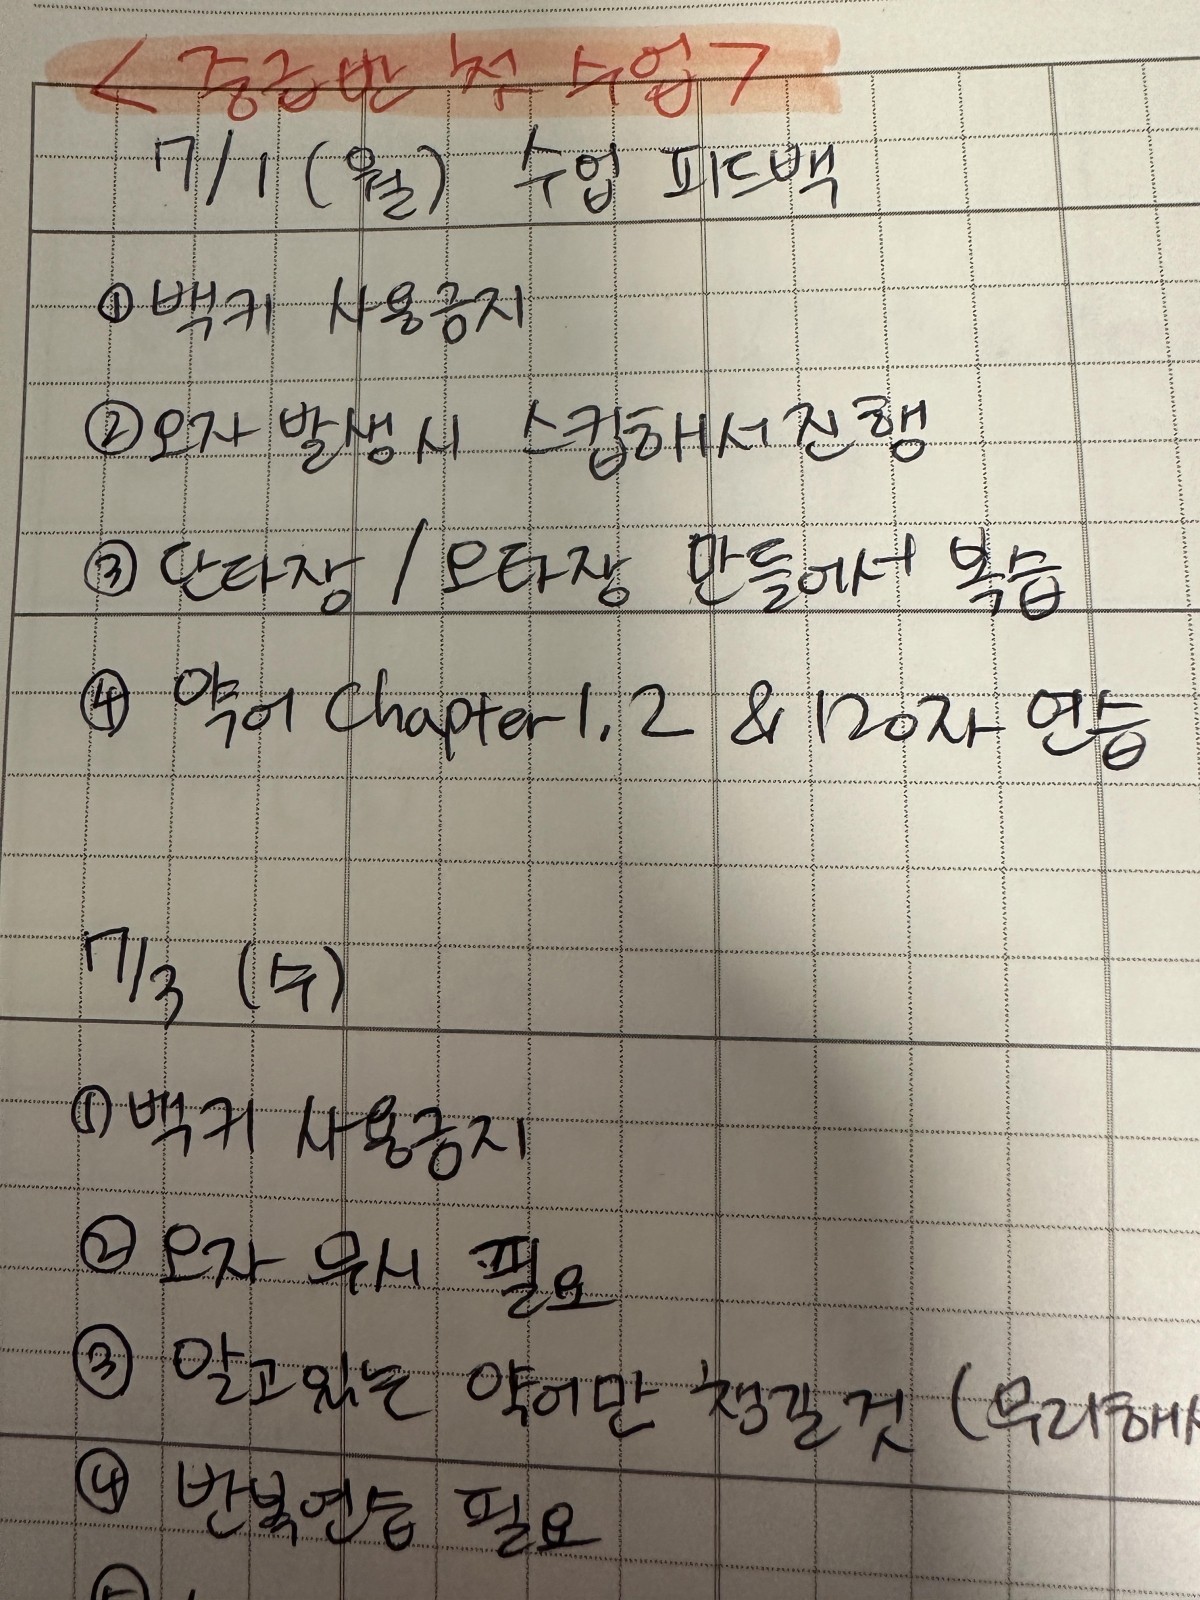 < 중급반 첫 수업 >
7/1 (월) 수업 피드백
① 백키 사용금지
② 오자 발생시 스킵해서 진행
③ 단타장 / 오타장 만들어서 복습
④ 약어 Chapter 1. 2 & 120자 연습
7/3 (수)
① 백키 사용금지
② 오자 무시 필요
③ 알고있는 약어만 챙길것 (무리해서
④ 반복연습 필요
⑤